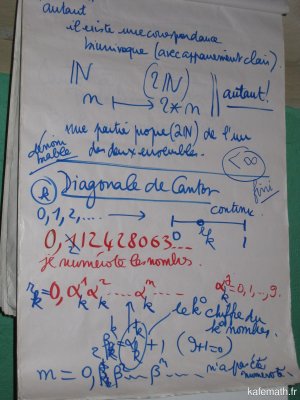 autant
il existe une correspondance
biunivoque (avec appariement clair).
ℕ (2ℕ)
n ⟼ 2*n autant!
une partie propre (2ℕ) de l'un
des deux ensembles.
dénom
mable
< ∞
fini
Diagonale de Cantor
0, 1, 2, .... → continue
0 1
0, 112428063...
je numérote les nombres.
le k° chiffre du
k° nombre.
(9+1=0)
n'a pas été
numéroté.
kafemath.fr